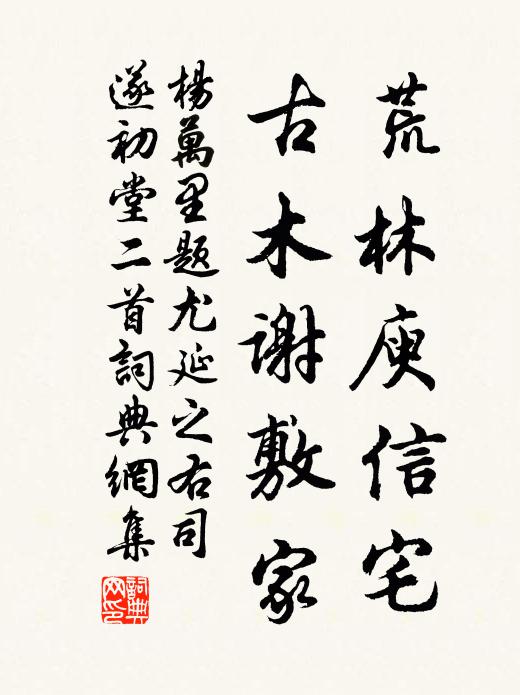 荒林庾信宅
古木謝敷家
楊萬里題尤延之右司
遂初堂二首詞典網集
詞典網印